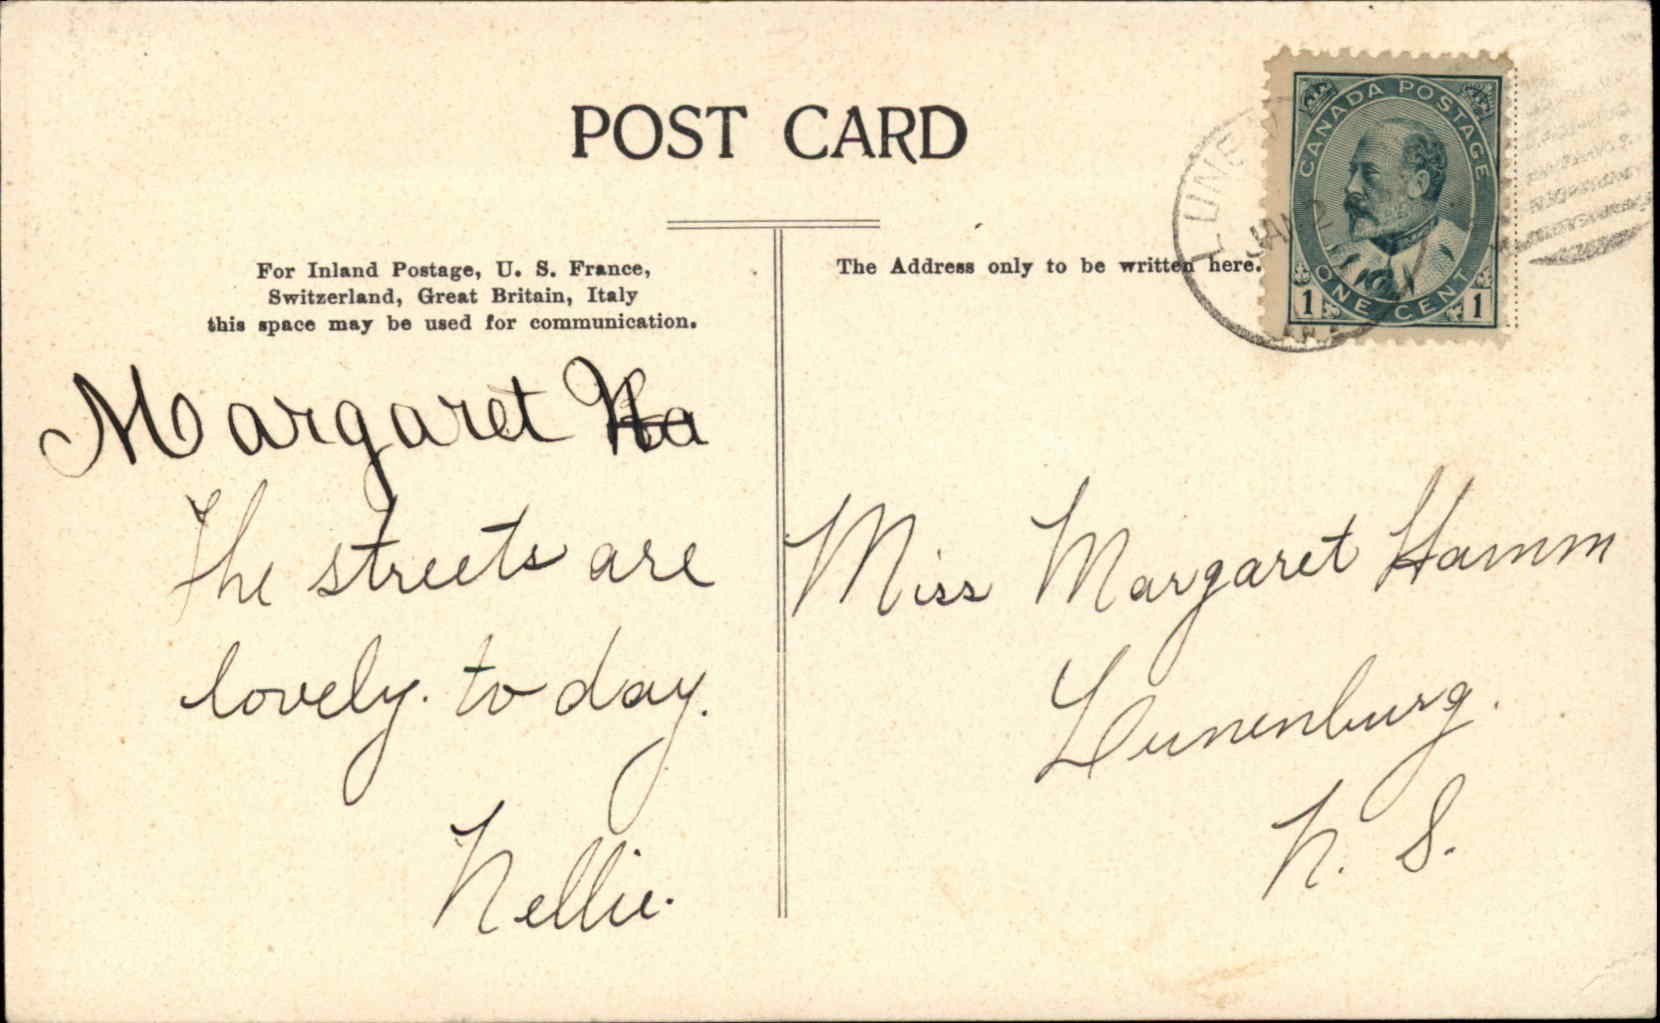 POST CARD
For Inland Postage, U. S. France,
Switzerland, Great Britain, Italy
this space may be used for communication.
Margaret Ha
The streets are
lovely. to day.
Nellie.
The Address only to be written here.
CANADA POSTAGE
ONE CENT
1 1
LUNE
JAN 2
Miss Margaret Hamm
Lunenburg.
N. S.